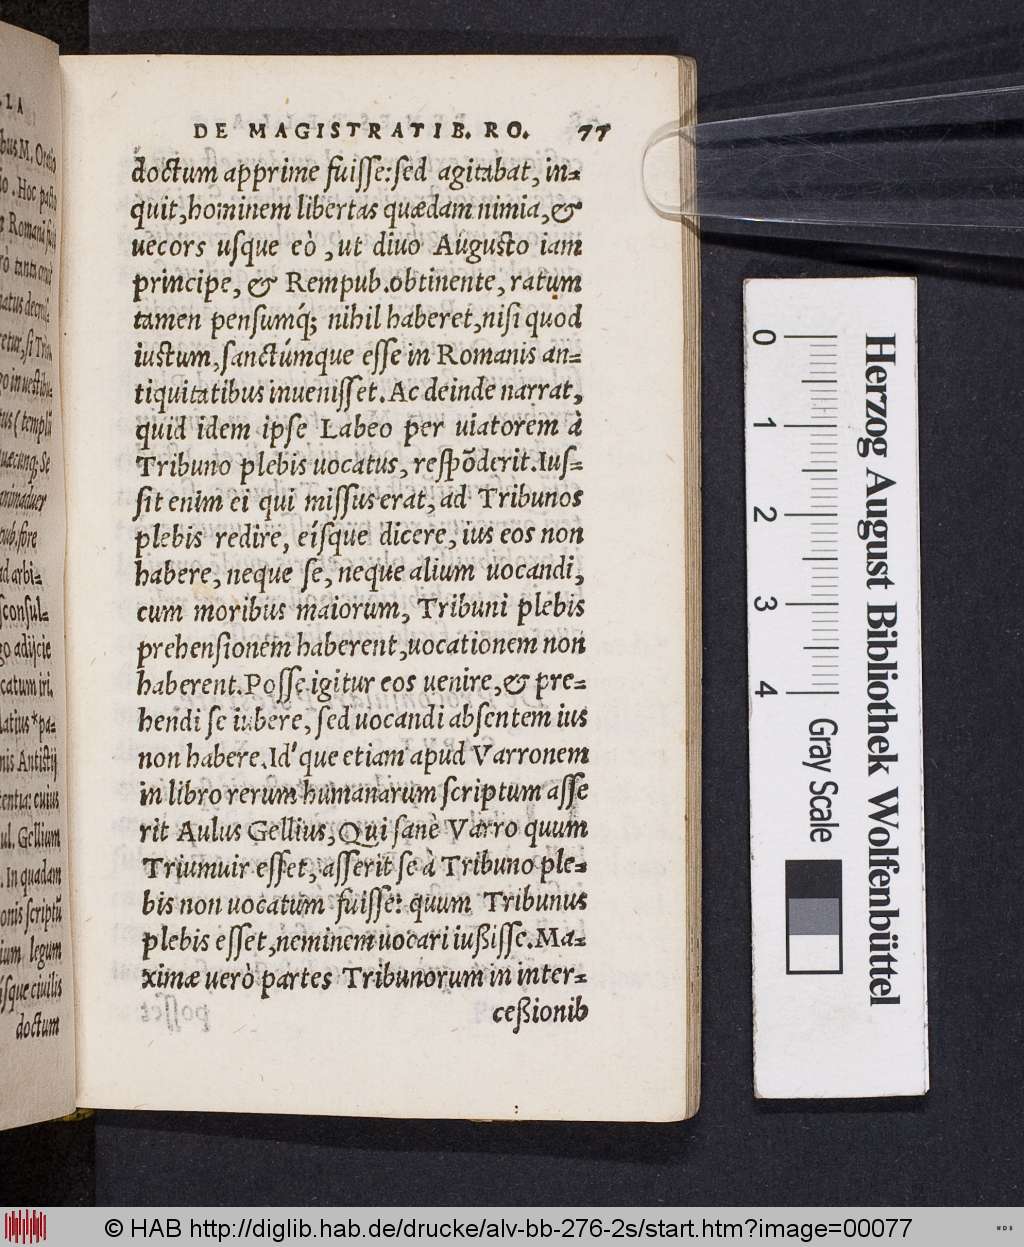 DE MAGISTRATIB. RO. 77
doctum apprime fuisse: sed agitabat, in-
quit, hominem libertas quædam nimia, &
uecors usque eò, ut diuo Augusto iam
principe, & Rempub. obtinente, ratum
tamen pensumq́; nihil haberet, nisi quod
iustum, sanctúmque esse in Romanis an-
tiquitatibus inuenisset. Ac deinde narrat,
quid idem ipse Labeo per uiatorem à
Tribuno plebis uocatus, respõderit. Ius-
sit enim ei qui missus erat, ad Tribunos
plebis redire, eísque dicere, ius eos non
habere, neque se, neque alium uocandi,
cum moribus maiorum, Tribuni plebis
prehensionem haberent, uocationem non
haberent. Posse igitur eos uenire, & pre-
hendi se iubere, sed uocandi absentem ius
non habere. Id' que etiam apud Varronem
in libro rerum humanarum scriptum asse
rit Aulus Gellius, Qui sanè Varro quum
Triumuir esset, asserit se à Tribuno ple-
bis non uocatum fuisse: quum Tribunus
plebis esset, neminem uocari iußisse. Ma-
ximæ uerò partes Tribunorum in inter-
ceßionib
LA
bus M.
. Hoc
Romani
tanta
natus
si
(templũ
Se
animaduer
fore
ad arbi-
consul-
adijcie
catum iri.
*pa-
nis Antistij
cuius
ul. Gellium
. In quadam
onis scriptũ
legum
sque ciuilis
doctum
0 1 2 3 4
Herzog August Bibliothek Wolfenbüttel
Gray Scale
© HAB http://diglib.hab.de/drucke/alv-bb-276-2s/start.htm?image=00077